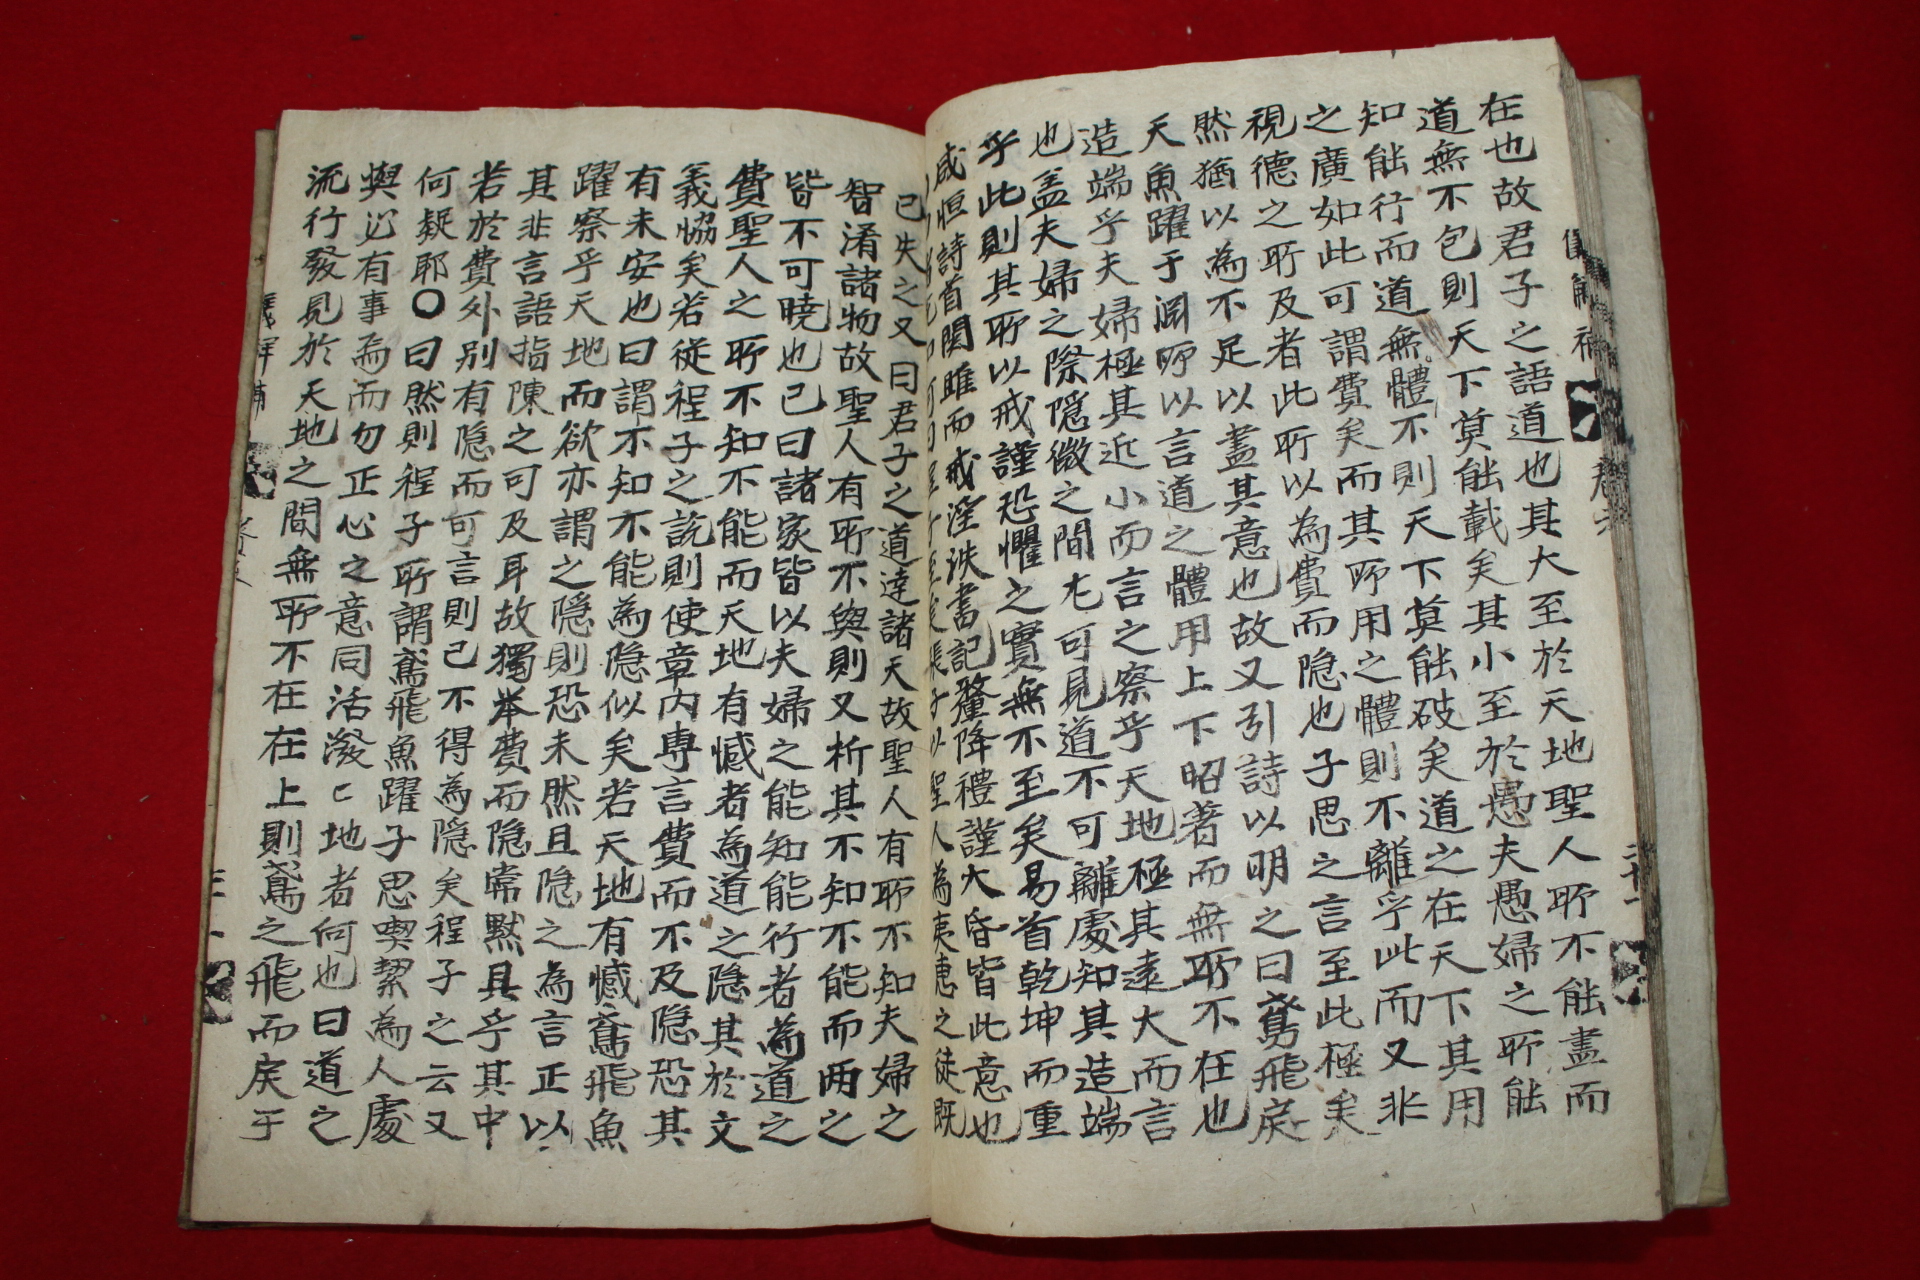 在也故君子之語道也其大至於天地聖人所不能盡而
道無不包則天下莫能載矣其小至於愚夫愚婦之所能
知能行而道無體不則天下莫能破矣道之在天下其用
之廣如此可謂費矣而其所用之體則不離乎此而又非
視德之所及者此所以為費而隐也子思之言至此極矣
然猶以為不足以盡其意也故又引詩以明之曰鳶飛戾
天魚躍于淵所以言道之體用上下昭著而無所不在也
造端乎夫婦極其近小而言之察乎天地極其遠大而言
也盖夫婦之際隱微之間尤可見道不可離處知其造端
乎此則其所以戒謹恐懼之實無不至矣易首乾坤而重
咸恒詩首関雎而戒淫泆書記釐降禮謹大昏皆此意也
矣張子以聖人為夷惠之徒既
已失之又曰君子之道達諸天故聖人有所不知夫婦之
智淆諸物故聖人有所不與則又析其不知不能而两之
皆不可曉也已曰諸家皆以夫婦之能知能行者為道之
費聖人之所不知不能而天地有憾者為道之隐其於文
義恊矣若従程子之説則使章内専言費而不及隐恐其
有未安也曰謂不知不能為隐似矣若天地有憾鳶飛魚
躍察乎天地而欲亦謂之隐則恐未然且隐之為言正以
其非言語指陳之可及耳故獨举費而隐常黙具乎其中
若於費外別有隐而可言則已不得為隐矣程子之云又
何疑耶○曰然則程子所謂鳶飛魚躍子思喫緊為人處
與必有事焉而勿正心之意同活潑〻地者何也曰道之
流行發見於天地之間無所不在在上則鳶之飛而戾于